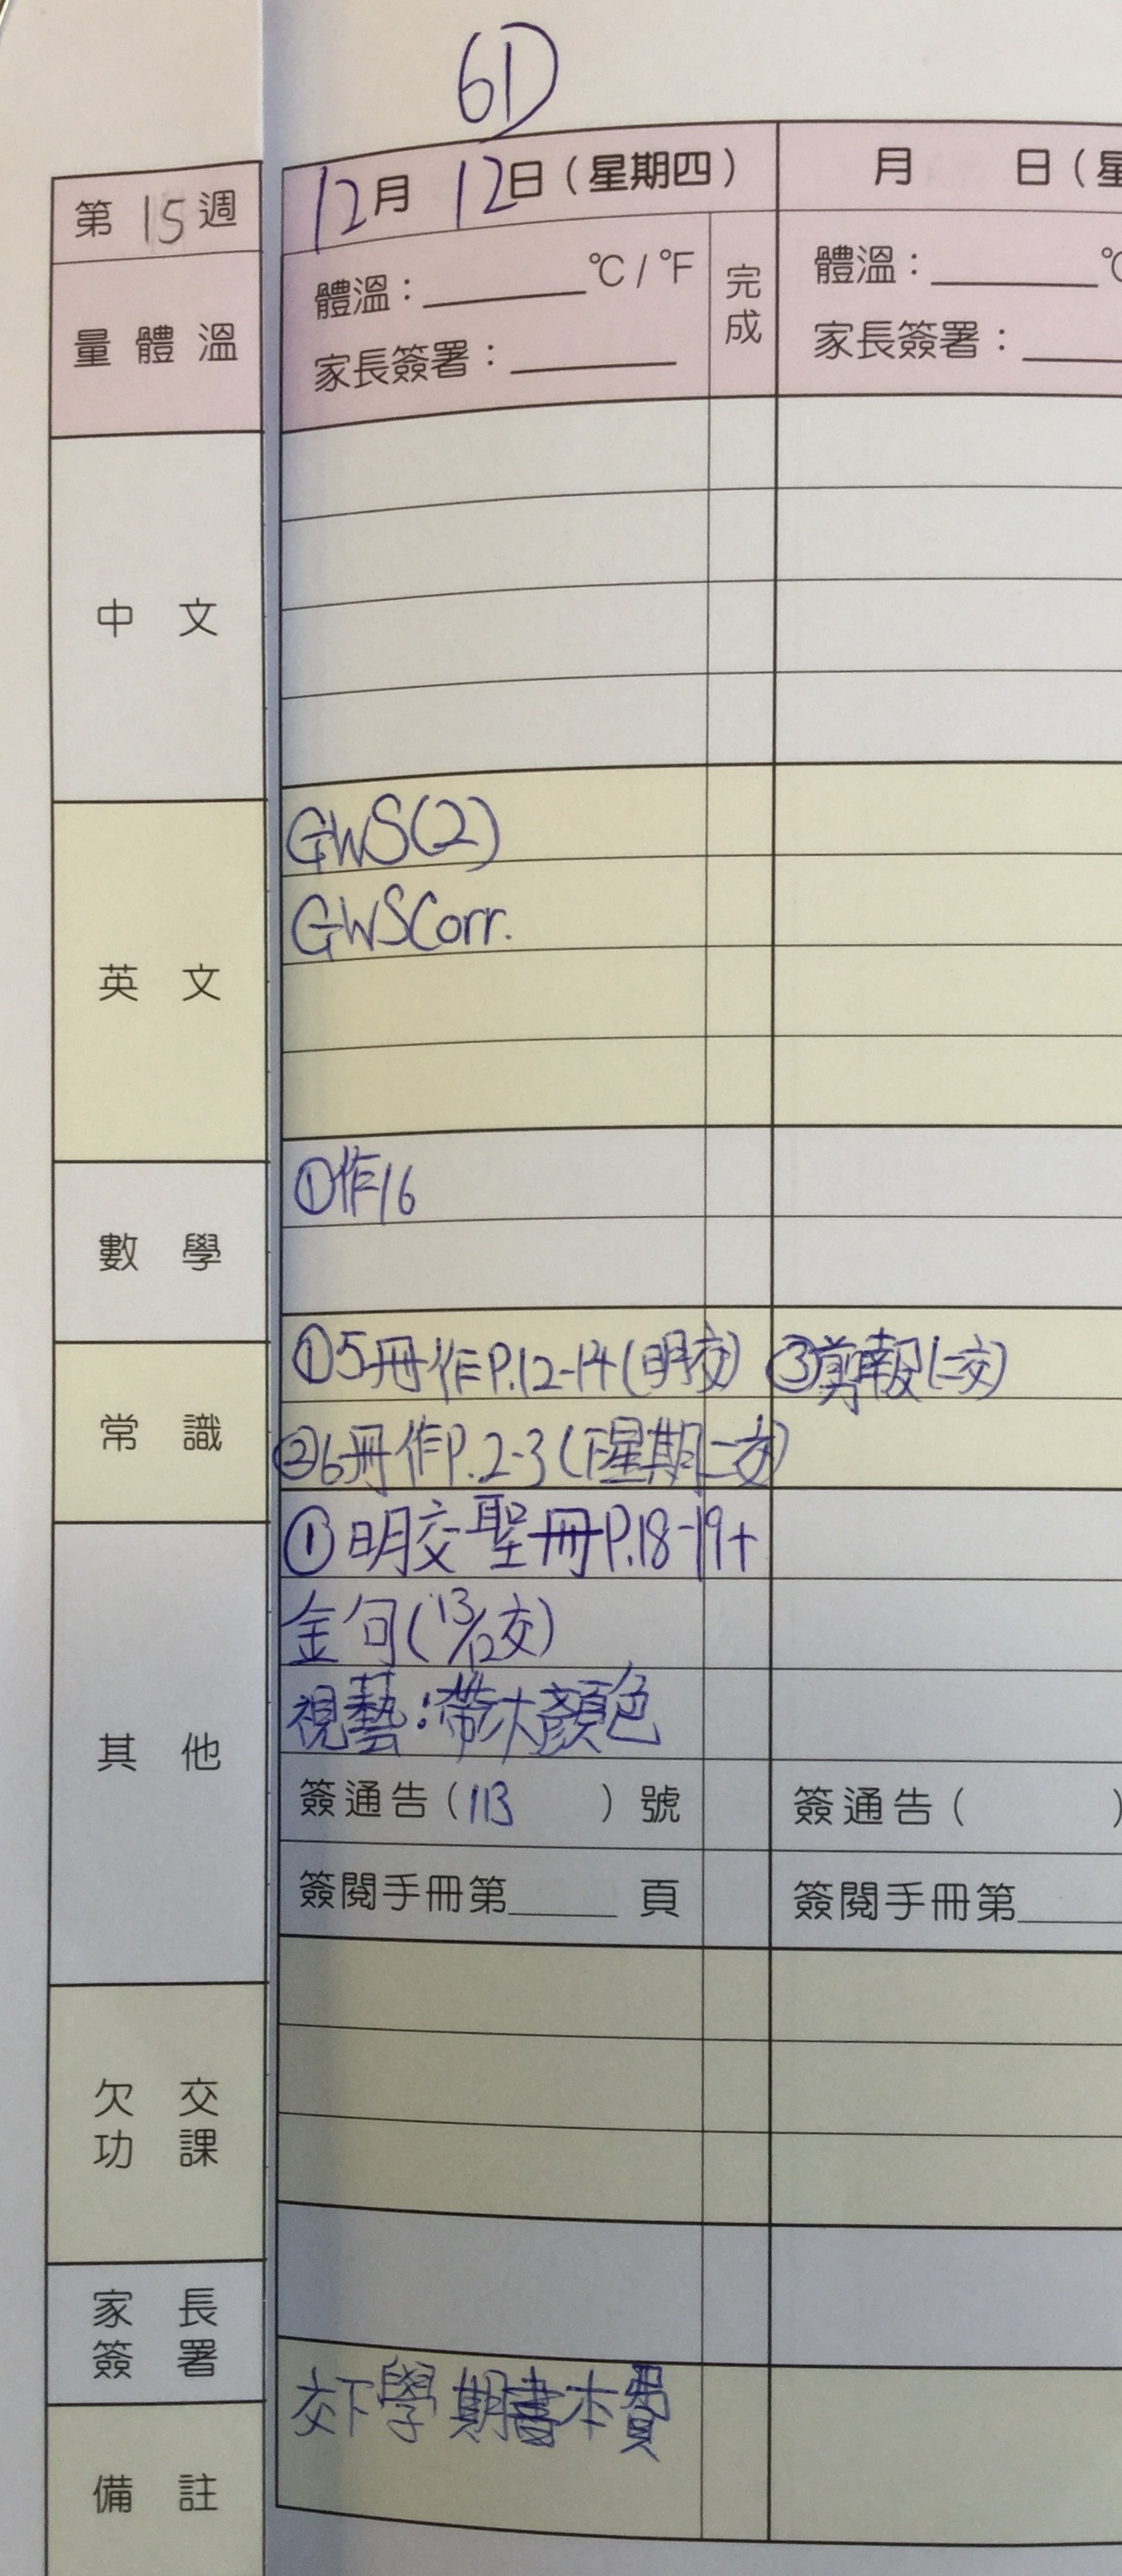 6D
第15週
12月 12日(星期四)
月 日(星
量體溫
體溫：______℃/℉
完成
體溫：______℃
家長簽署：______
家長簽署：
中文
英文
GWS(2)
GWSCorr.
數學
①作16
常識
①5冊作P.12-14(明交) ③剪報(二交)
②6冊作P.2-3(下星期二交)
其他
①明交聖冊P.18-19+
金句(13/12交)
視藝:帶水顏色
簽通告(113 )號
簽通告( )
簽閱手冊第_____頁
簽閱手冊第
欠交功課
家長簽署
備註
交下學期書本費